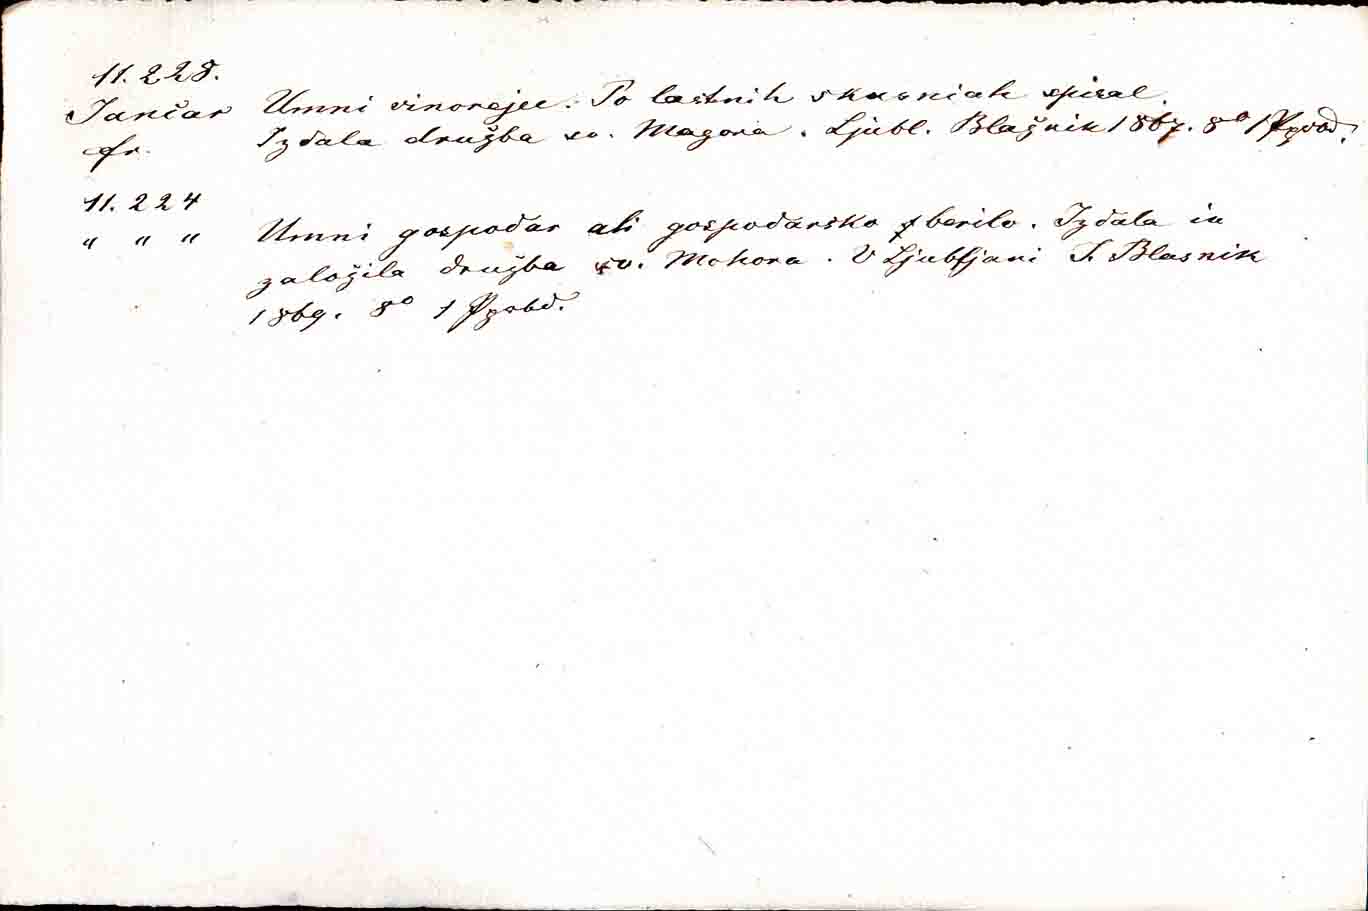 11.228.
Jančar Umni vinorejec. Po lastnih skusniah spisal.
Fr. Izdala družba sv. Magora. Ljubl. Blažnik 1867. 8° 1 Ppbd.
11.224
" " " Umni gospodar ali gospodarsko berilo. Izdala in
založila družba sv. Mohora. V Ljubljani J. Blasnik
1869. 8° 1 Ppbd.